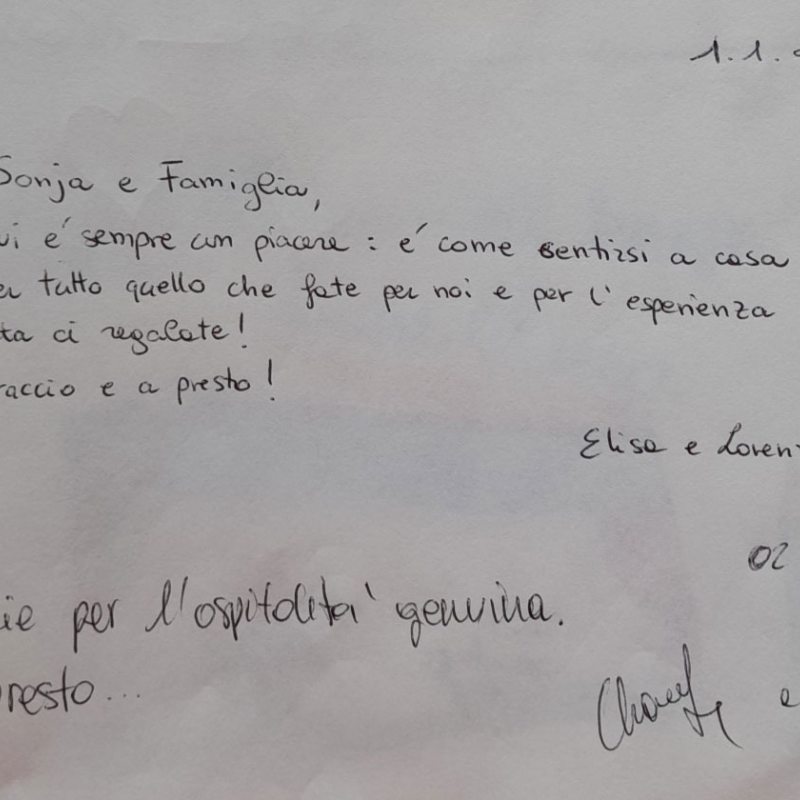 1.1.
Sonja e Famiglia,
ui é sempre un piacere : é come sentirsi a casa
er tutto quello che fate per noi e per l'esperienza
ta ci regalate!
raccio e a presto!
Elisa e Loren
02
ie per l'ospitalita' genuina.
presto...
e